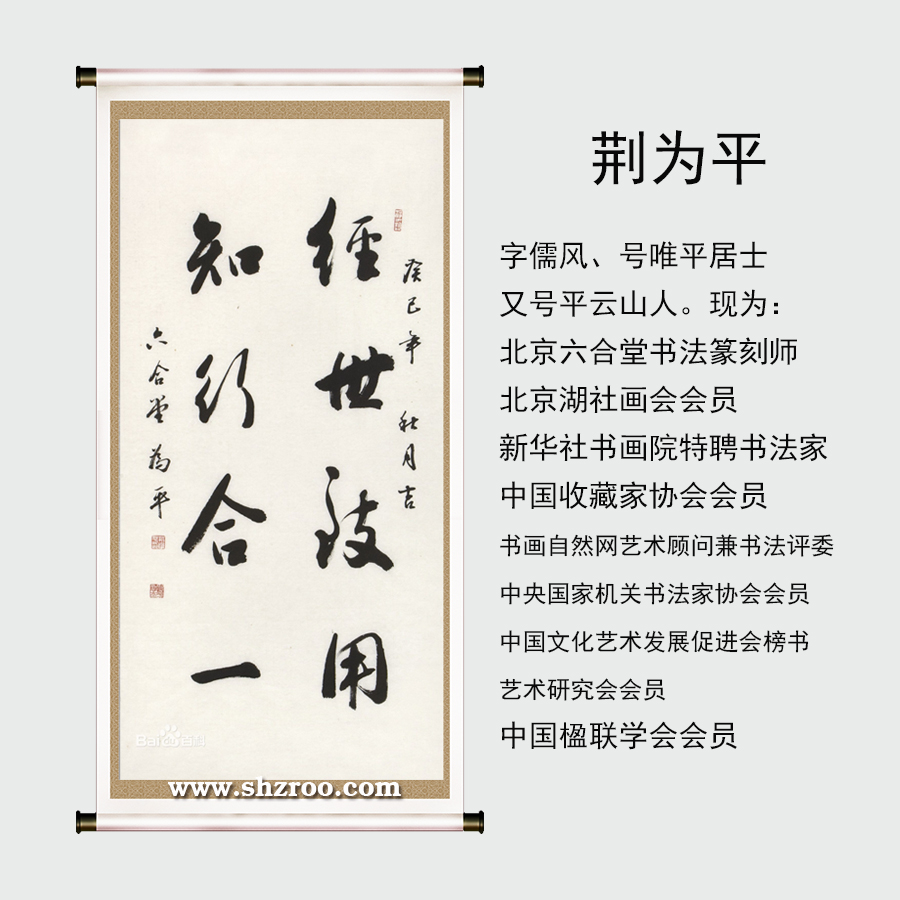 荆为平
字儒风、号唯平居士
又号平云山人。现为：
北京六合堂书法篆刻师
北京湖社画会会员
新华社书画院特聘书法家
中国收藏家协会会员
书画自然网艺术顾问兼书法评委
中央国家机关书法家协会会员
中国文化艺术发展促进会榜书
艺术研究会会员
中国楹联学会会员
癸巳年 秋月吉
經世致用
知行合一
六合堂 為平
Baidu百科
www.shzroo.com